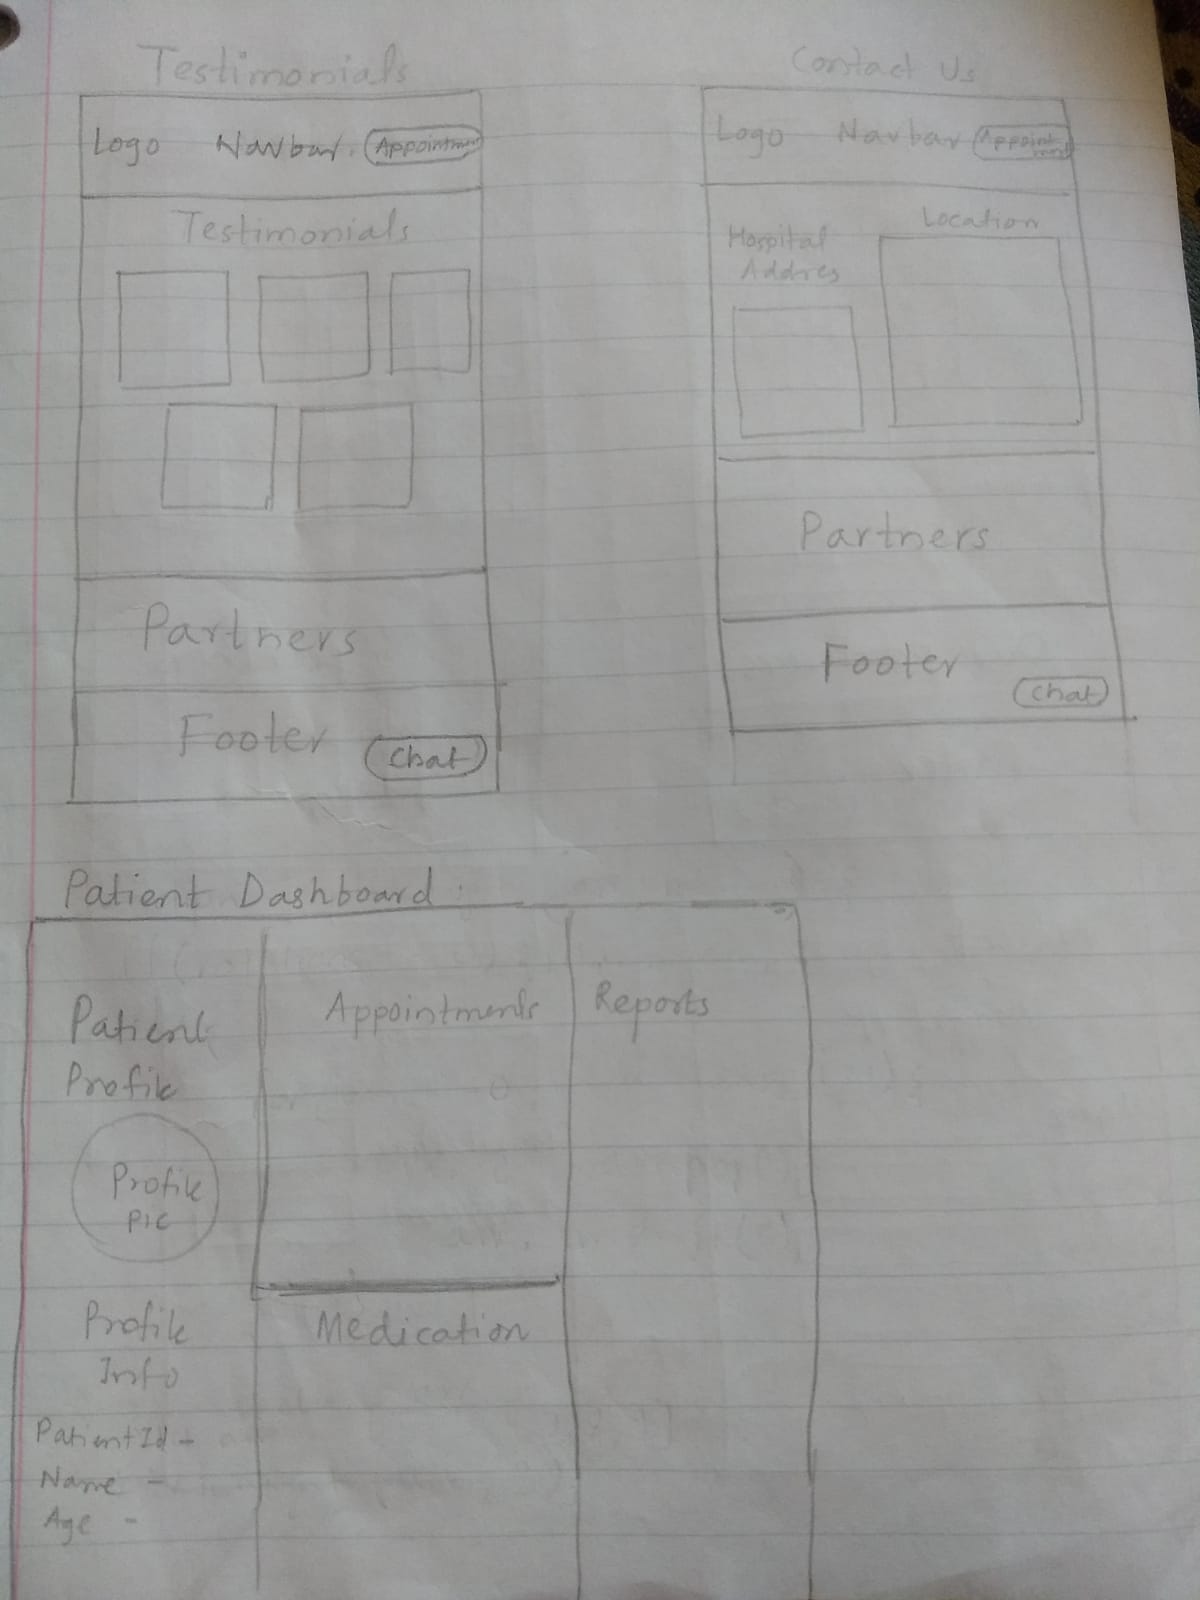 Testimonials
Logo Navbar. Appointment
Testimonials
Partners
Footer
Chat
Contact Us
Logo Navbar Appointment
Hospital
Addres
Location
Partners
Footer
Chat
Patient Dashboard :
Patient
Profile
Profile
Pic
Profile
Info
Patient Id -
Name -
Age -
Appointments
Medication
Reports